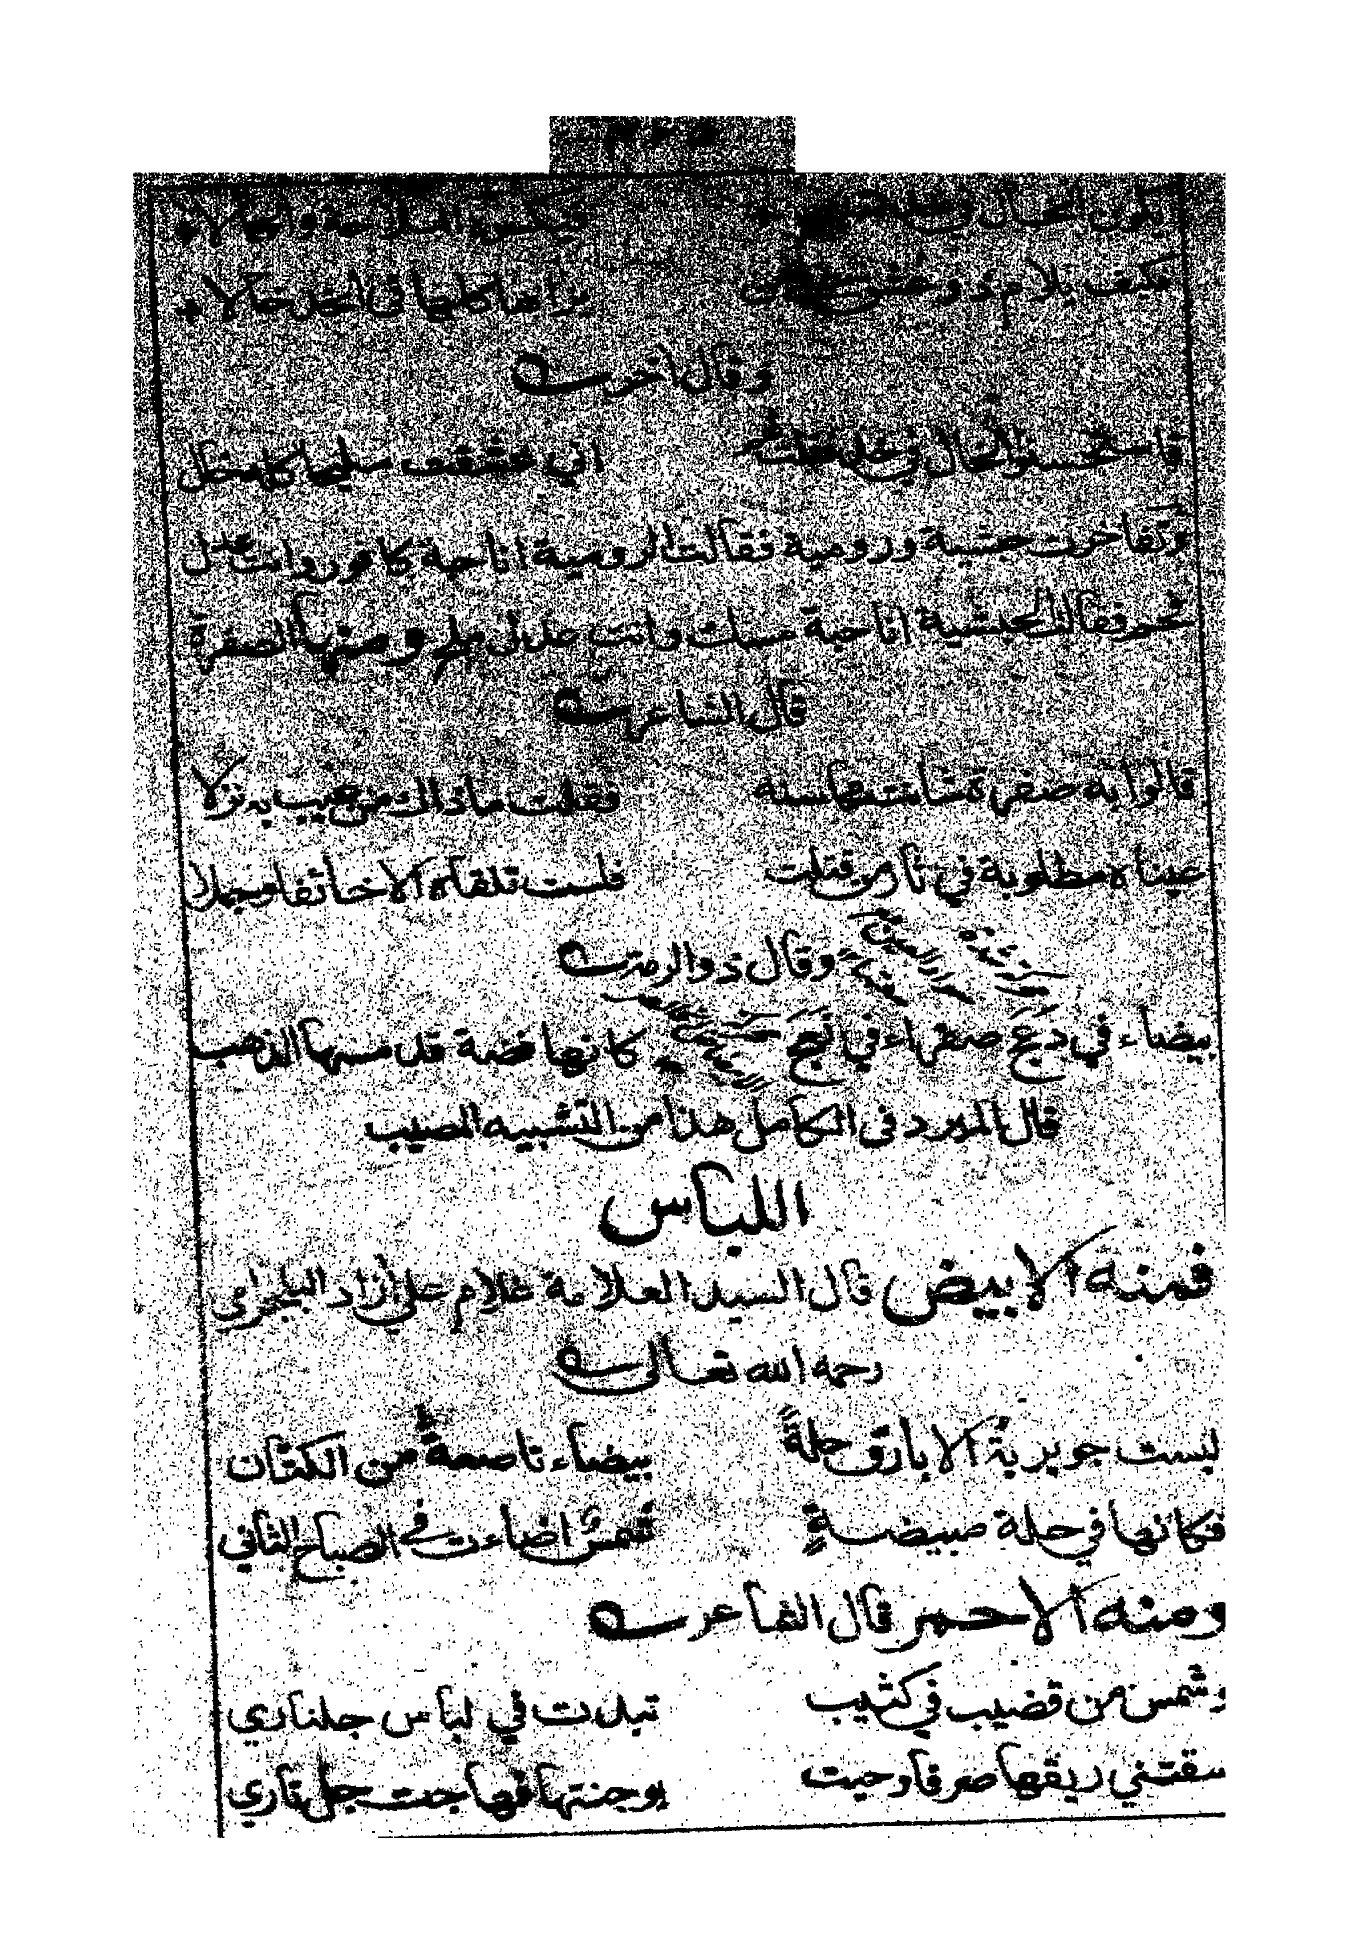 بلون الخال في خد
ويكسوه الملاحة والجمالا
فكيف يلام ذو عشق
يراها كلها في الخد خالا
وقال آخر
فاستحسنوا الخال في خد فقلت لهم
اني عشقت مليحا كله خال
وتفاخرت حبشية ورومية فقالت الرومية انا حبة كافور وانت عدل
فحم فقالت الحبشية انا حبة مسك وانت عدل ملح ومنها الصفرة
قال الشاعر
قالوا به صفرة شانت محاسنه
فقلت ما ذاك من عيب به نزلا
عيناه مطلوبة في ثار من قتلت
فلست تلقاه الا خائفا وجلا
وقال ذو الرمة
بيضاء في دعج صفراء في نعج
كانها فضة قد مسها الذهب
قال المبرد في الكامل هذا من التشبيه المصيب
اللباس
فمنه الابيض قال السيد العلامة غلام علي آزاد البلجرامي
رحمه الله تعالى
لبست جويرية الابارق حلةً
بيضاء ناصعةً من الكتان
فكانها في حلة مبيضةٍ
قمرٌ اضاءت في الصباح الثاني
ومنه الاحمر قال الشاعر
وشمس من قضيب في كثيب
تبدت في لباس جلناري
سقتني ريقها صرفا وحيت
بوجنتها فهاجت جل ناري